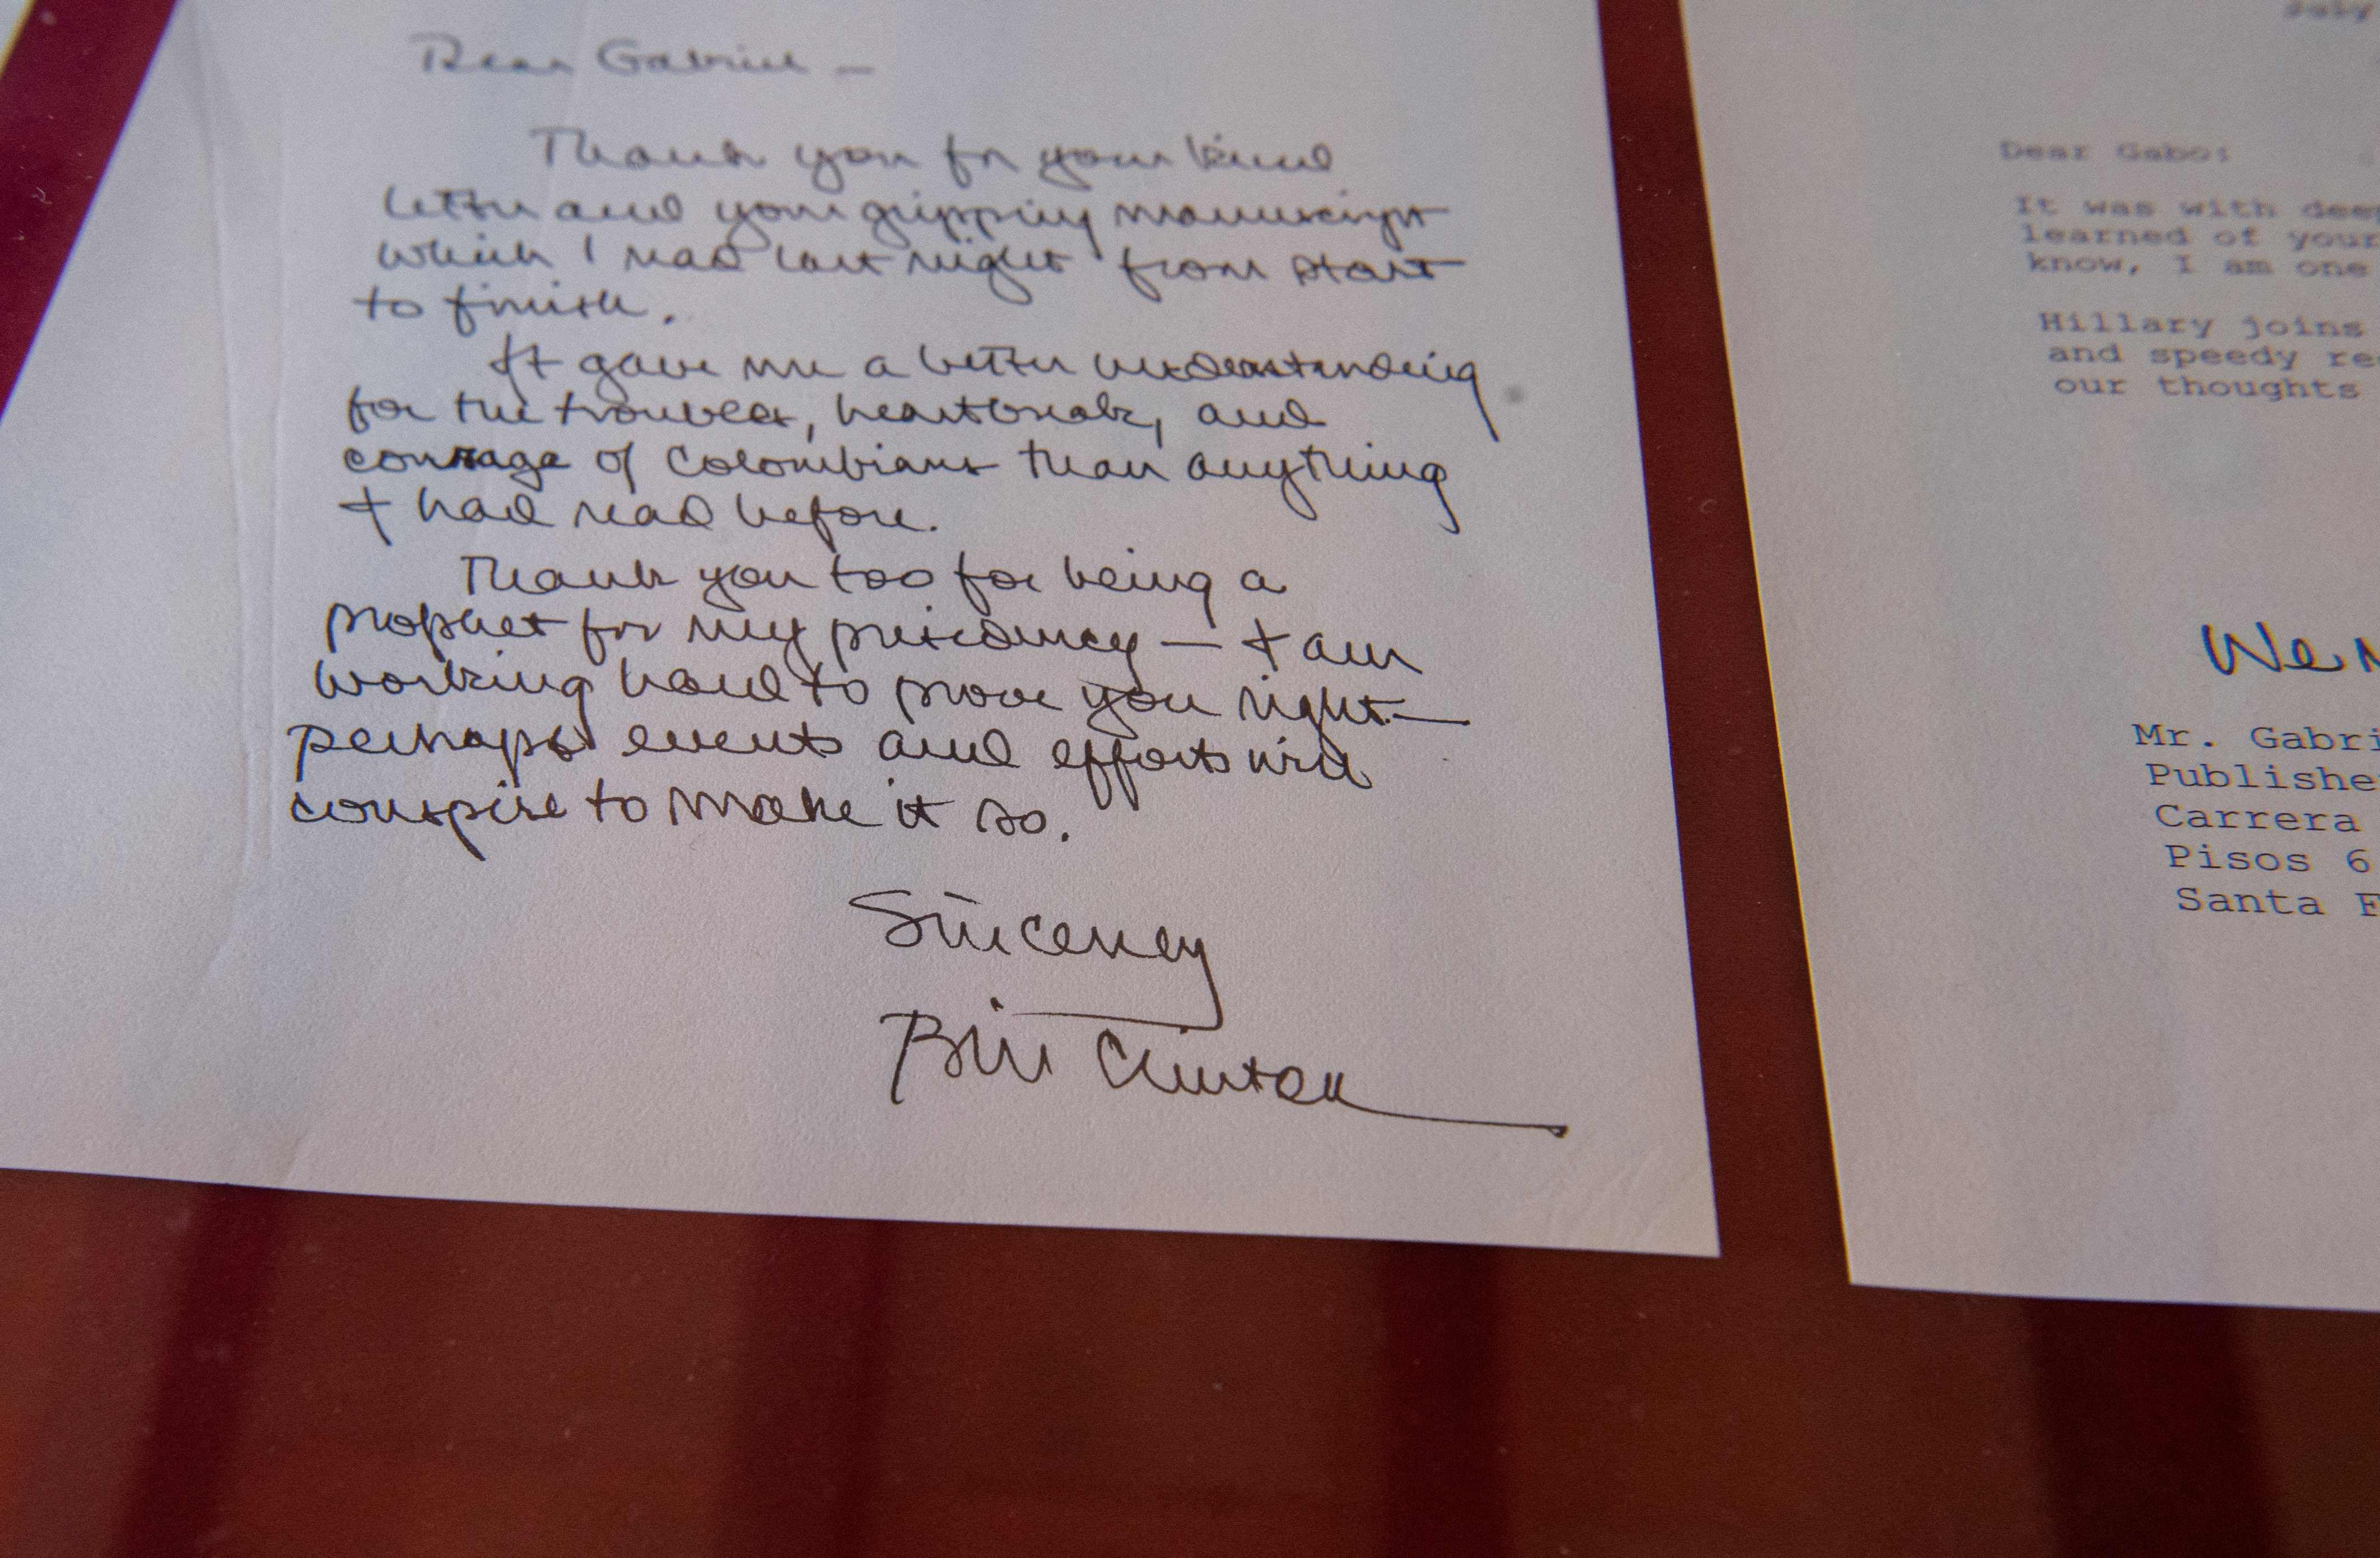 Dear Gabriel —
Thank you for your kind
letter and your gripping manuscript
which I read last night from start
to finish.
It gave me a better understanding
for the troubles, heartbreak, and
courage of Colombians than anything
I had read before.
Thank you too for being a
prophet for my presidency — I am
working hard to prove you right —
perhaps events and efforts will
conspire to make it so.
Sincerely
Bill Clinton
July
Dear Gabo:
It was with dee
learned of your
know, I am one
Hillary joins
and speedy re
our thoughts
We
Mr. Gabri
Publishe
Carrera
Pisos 6
Santa F